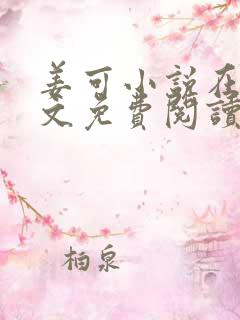 姜可小說在
文免費閱讀
柏泉